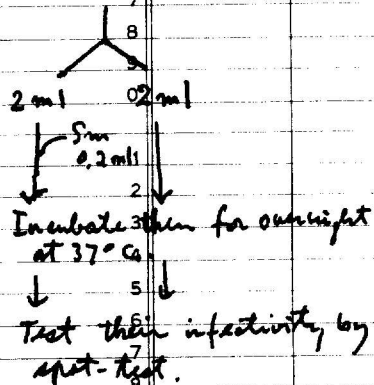 7
8
9
2 ml 0 2 ml
Sm
0.2 ml 1
2
Incubate 3 then for overnight
at 37° C 4
5
Test their 6 infectivity by
7
spot-test.
8